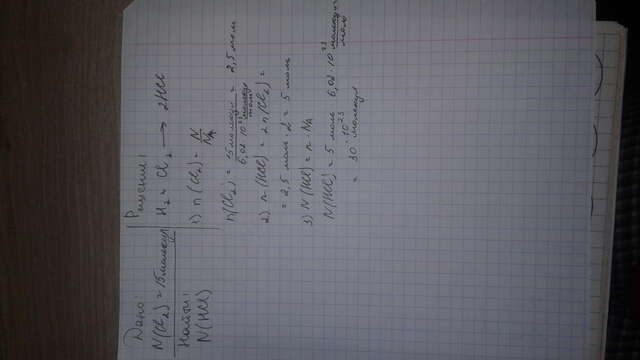 Дано:
N(Cl₂) = 15 молекул
Найти:
N(HCl)
Решение:
H₂ + Cl₂ → 2HCl
1) n(Cl₂) = N/Nₐ
n(Cl₂) = 15 молекул / 6,02 · 10²³ молекул/моль = 2,5 моль
2) n(HCl) = 2n(Cl₂) =
= 2,5 моль · 2 = 5 моль
3) N(HCl) = n · Nₐ
N(HCl) = 5 моль 6,02 · 10²³ молекул/моль
= 30 · 10²³ молекул